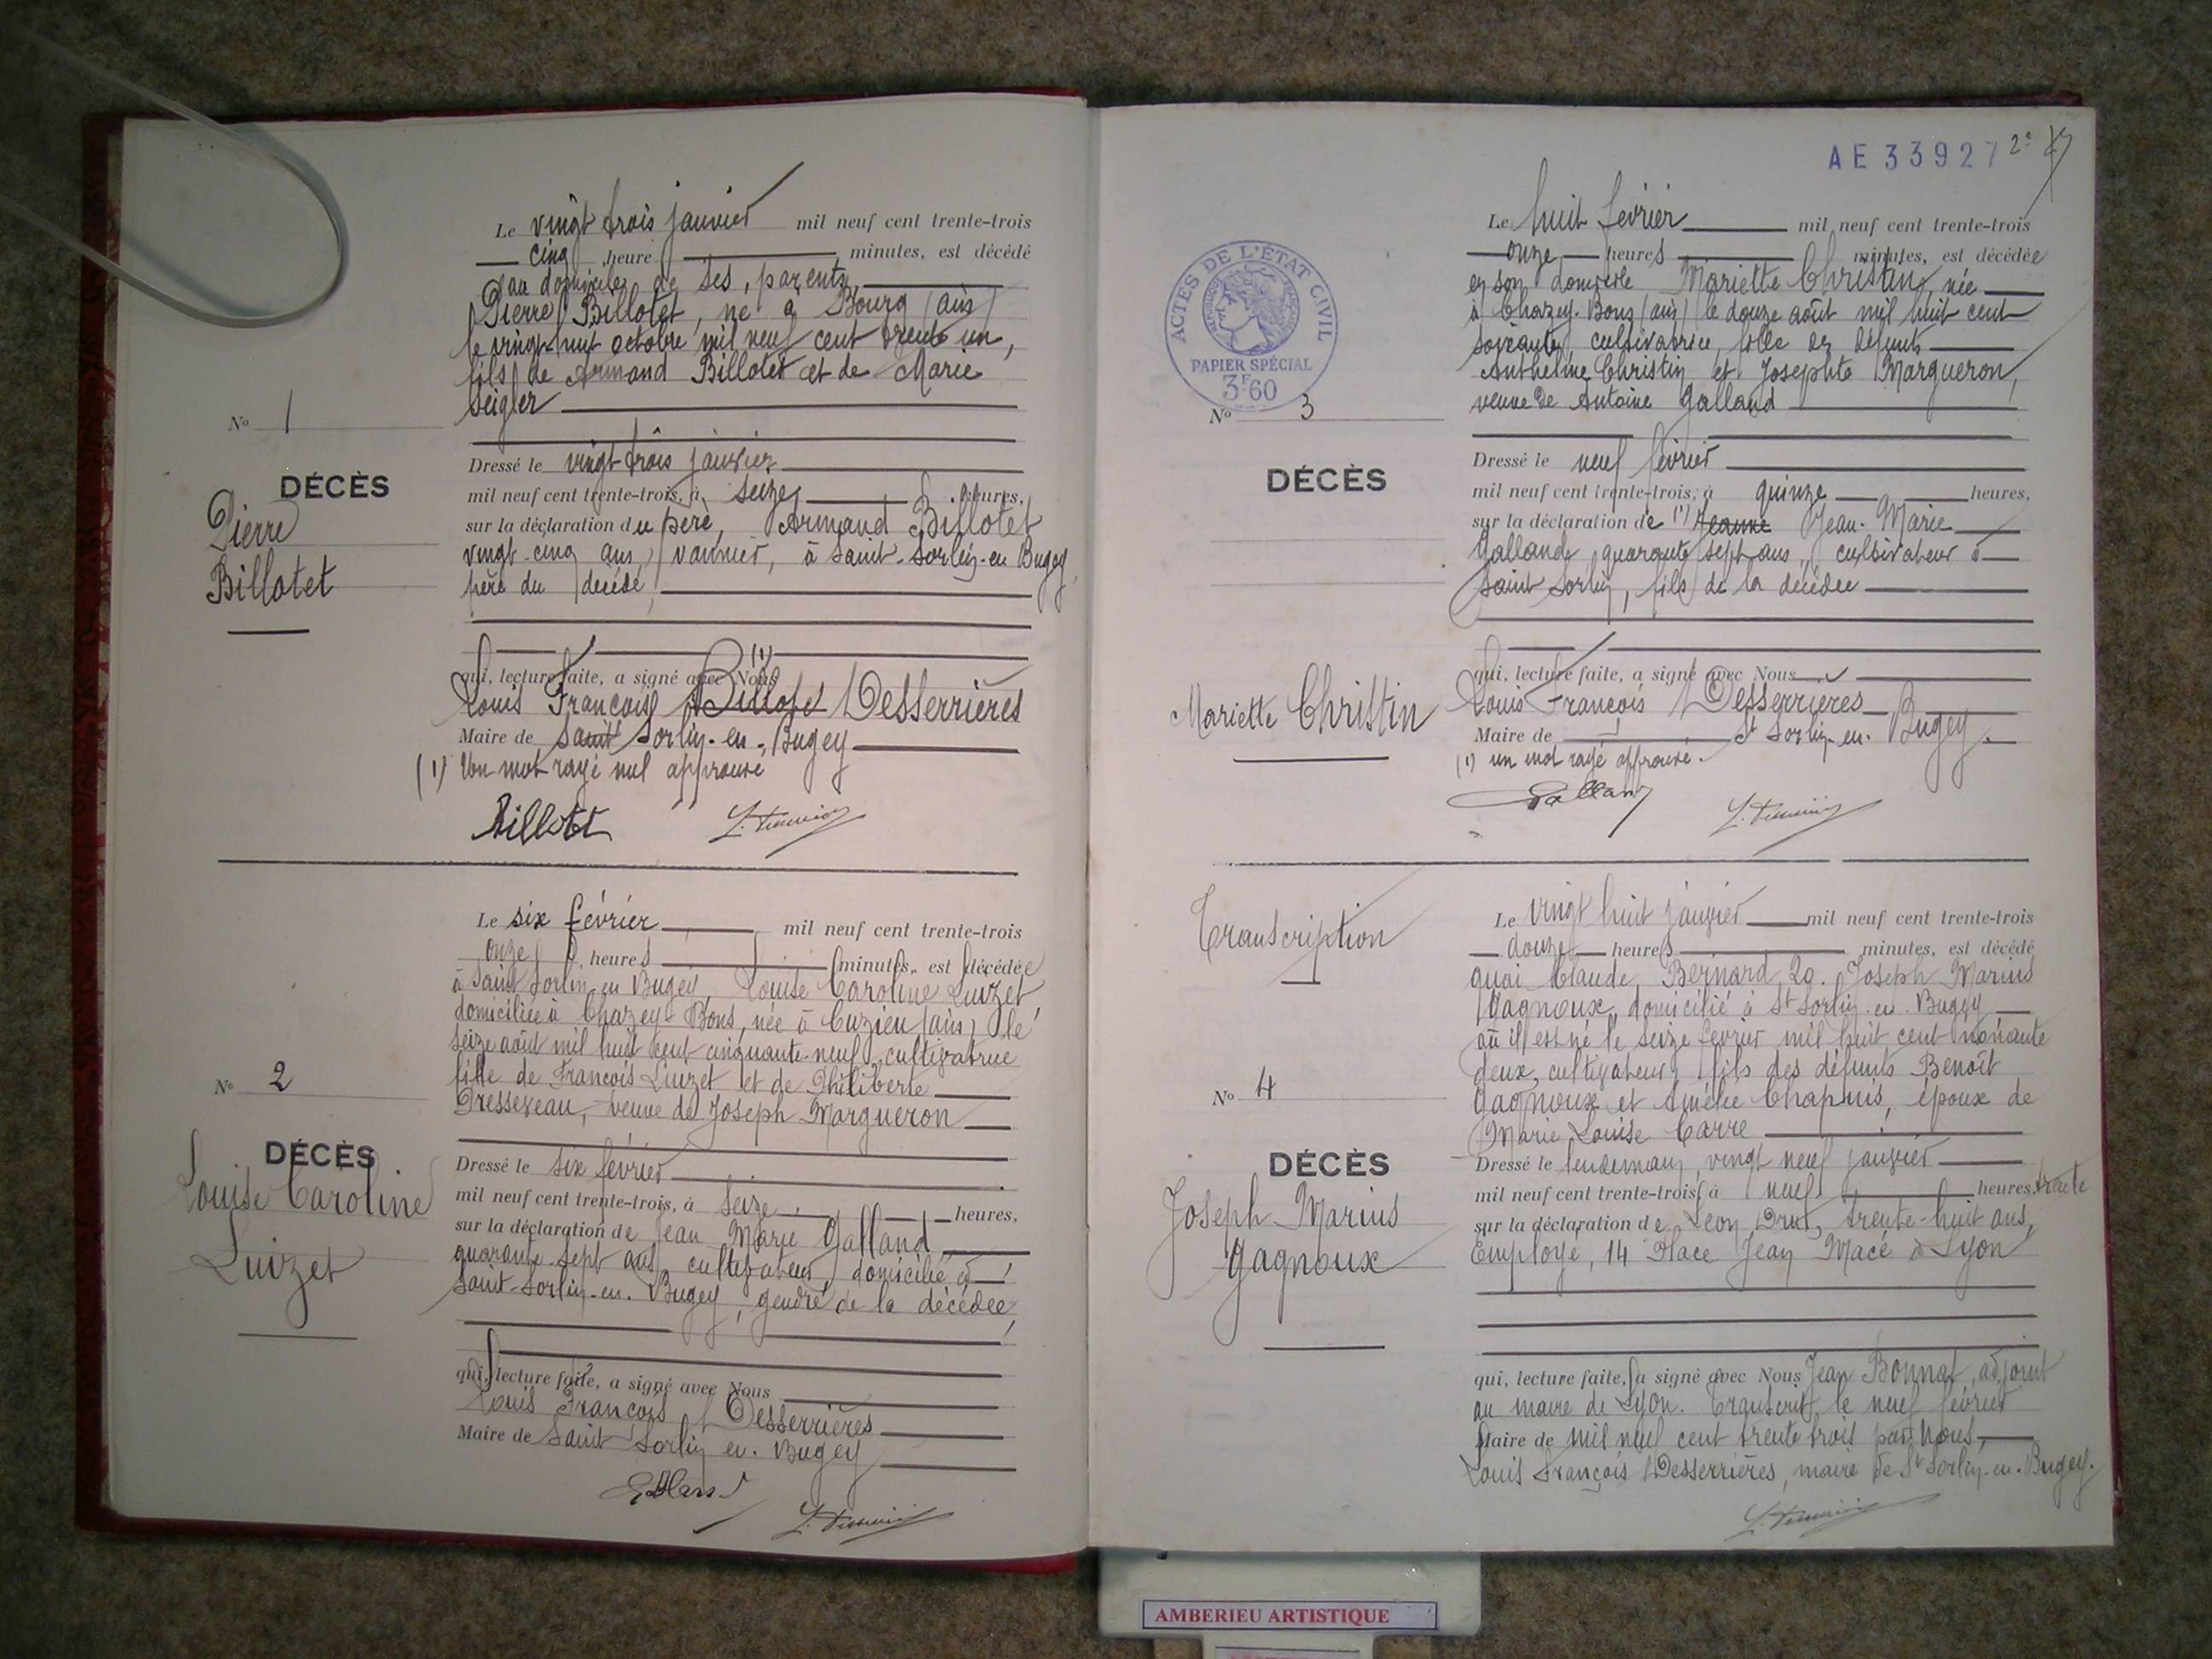 Le vingt trois janvier mil neuf cent trente-trois
cinq heure minutes, est décédé
au domicile de ses parents,
Pierre Billotet, né à Bourg (ain)
le vingt-huit octobre mil neuf cent trente un,
fils de Armand Billotet et de Marie
Seigler
No 1
DÉCÈS
Pierre
Billotet
Dressé le vingt trois janvier
mil neuf cent trente-trois, à seize heures,
sur la déclaration du père, Armand Billotet
vingt-cinq ans, vannier, à Saint-Sorlin-en Bugey,
père du décédé,
(1)
qui, lecture faite, a signé avec Nous
Louis François Billotet Desserrières
Maire de Saint Sorlin-en-Bugey
(1) Un mot rayé nul approuvé
Billotet
Le six février mil neuf cent trente-trois
onze heures minutes, est décédée
à Saint Sorlin en Bugey, Louise Caroline Luizet
domiciliée à Chazey-Bons, née à Cuzieu (ain) le
seize août mil huit cent cinquante-neuf, cultivatrice
fille de François Luizet et de Philiberte
Dresseveau, veuve de Joseph Margueron
No 2
DÉCÈS
Louise Caroline
Luizet
Dressé le six février
mil neuf cent trente-trois, à seize heures,
sur la déclaration de Jean Marie Galland,
quarante-sept ans, cultivateur, domicilié à
Saint-Sorlin-en-Bugey, gendre de la décédée,
qui, lecture faite, a signé avec Nous
Louis François Desserrières
Maire de Saint Sorlin en-Bugey
AE 33927 2e
ACTES DE L'ÉTAT CIVIL
PAPIER SPÉCIAL
3F60
Le huit février mil neuf cent trente-trois
onze heures minutes, est décédée
en son domicile Mariette Christin, née
à Chazey-Bons (ain) le douze août mil huit cent
soixante, cultivatrice, fille des défunts
Anthelme Christin et Josephte Margueron,
veuve de Antoine Galland
No 3
DÉCÈS
Mariette Christin
Dressé le neuf février
mil neuf cent trente-trois, à quinze heures,
sur la déclaration de (1) Jeanne Jean-Marie
Galland, quarante sept ans, cultivateur à
Saint Sorlin, fils de la décédée
qui, lecture faite, a signé avec Nous
Louis François Desserrières
Maire de St Sorlin-en-Bugey.
(1) un mot rayé approuvé.
Galland
Transcription
Le vingt huit janvier mil neuf cent trente-trois
douze heures minutes, est décédé
quai Claude Bernard 20. Joseph Marius
Gagnoux, domicilié à St Sorlin-en-Bugey
où il est né le seize février mil huit cent nonante
deux, cultivateur, fils des défunts Benoît
Gagnoux et Amélie Chapuis, époux de
Marie Louise Carre
No 4
DÉCÈS
Joseph Marius
Gagnoux
Dressé le lendemain, vingt neuf janvier
mil neuf cent trente-trois, à neuf heures, trente
sur la déclaration de Léon Drut, trente-huit ans,
Employé, 14 Place Jean Macé à Lyon
qui, lecture faite, a signé avec Nous Jean Bonnat, adjoint
au maire de Lyon. Transcrit le neuf février
Maire de mil neuf cent trente trois par Nous,
Louis François Desserrières, maire de St Sorlin-en-Bugey.
AMBERIEU ARTISTIQUE